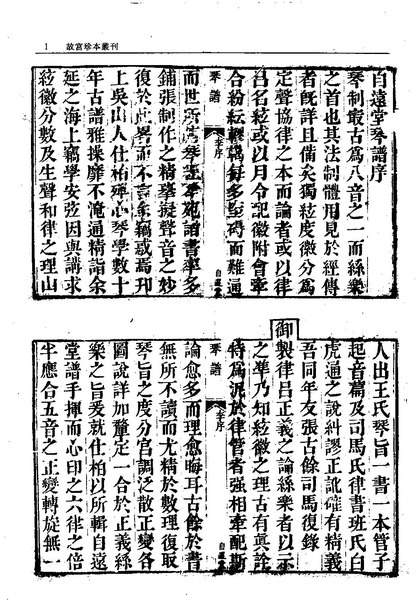 1 故宮珍本叢刊
自遠堂琴譜序
琴制最古爲八音之一而絲樂
之首也其法制體用見於經傳
者旣詳且備矣獨絃度徽分爲
定聲協律之本而論者或以律
呂名絃或以月令記徽附會牽
合紛紜轇轕每多窒碍而難通
琴譜
李序
自遠堂
而世所琴譜書率多
鋪張制作之精摹擬聲音之妙
復於此畧而不言余竊惑焉邗
上吳山人仕栢殫心琴學數十
年古譜雅操靡不淹通精詣余
延之海上竊學安弦因與講求
絃徽分數及生聲和律之理山
人出王氏琴旨一書一本管子
起音篇及司馬氏律書班氏白
虎通之說糾謬正訛確有精義
吾同年友張古餘司馬復錄
御製律呂正義之論絲樂者以示
之準乃知絃徽之理古有真詮
琴譜
李序
自遠堂
特爲泥於律管者強相牽配斯
論愈多而理愈晦耳古餘於書
無所不讀而尤精於數理復取
琴旨之度分宮調泛散正變各
圖說詳加釐定一合於正義絲
樂之旨爰就仕栢以所輯自遠
堂譜手揮而心印之六律之倍
半應合五音之正變轉旋無一